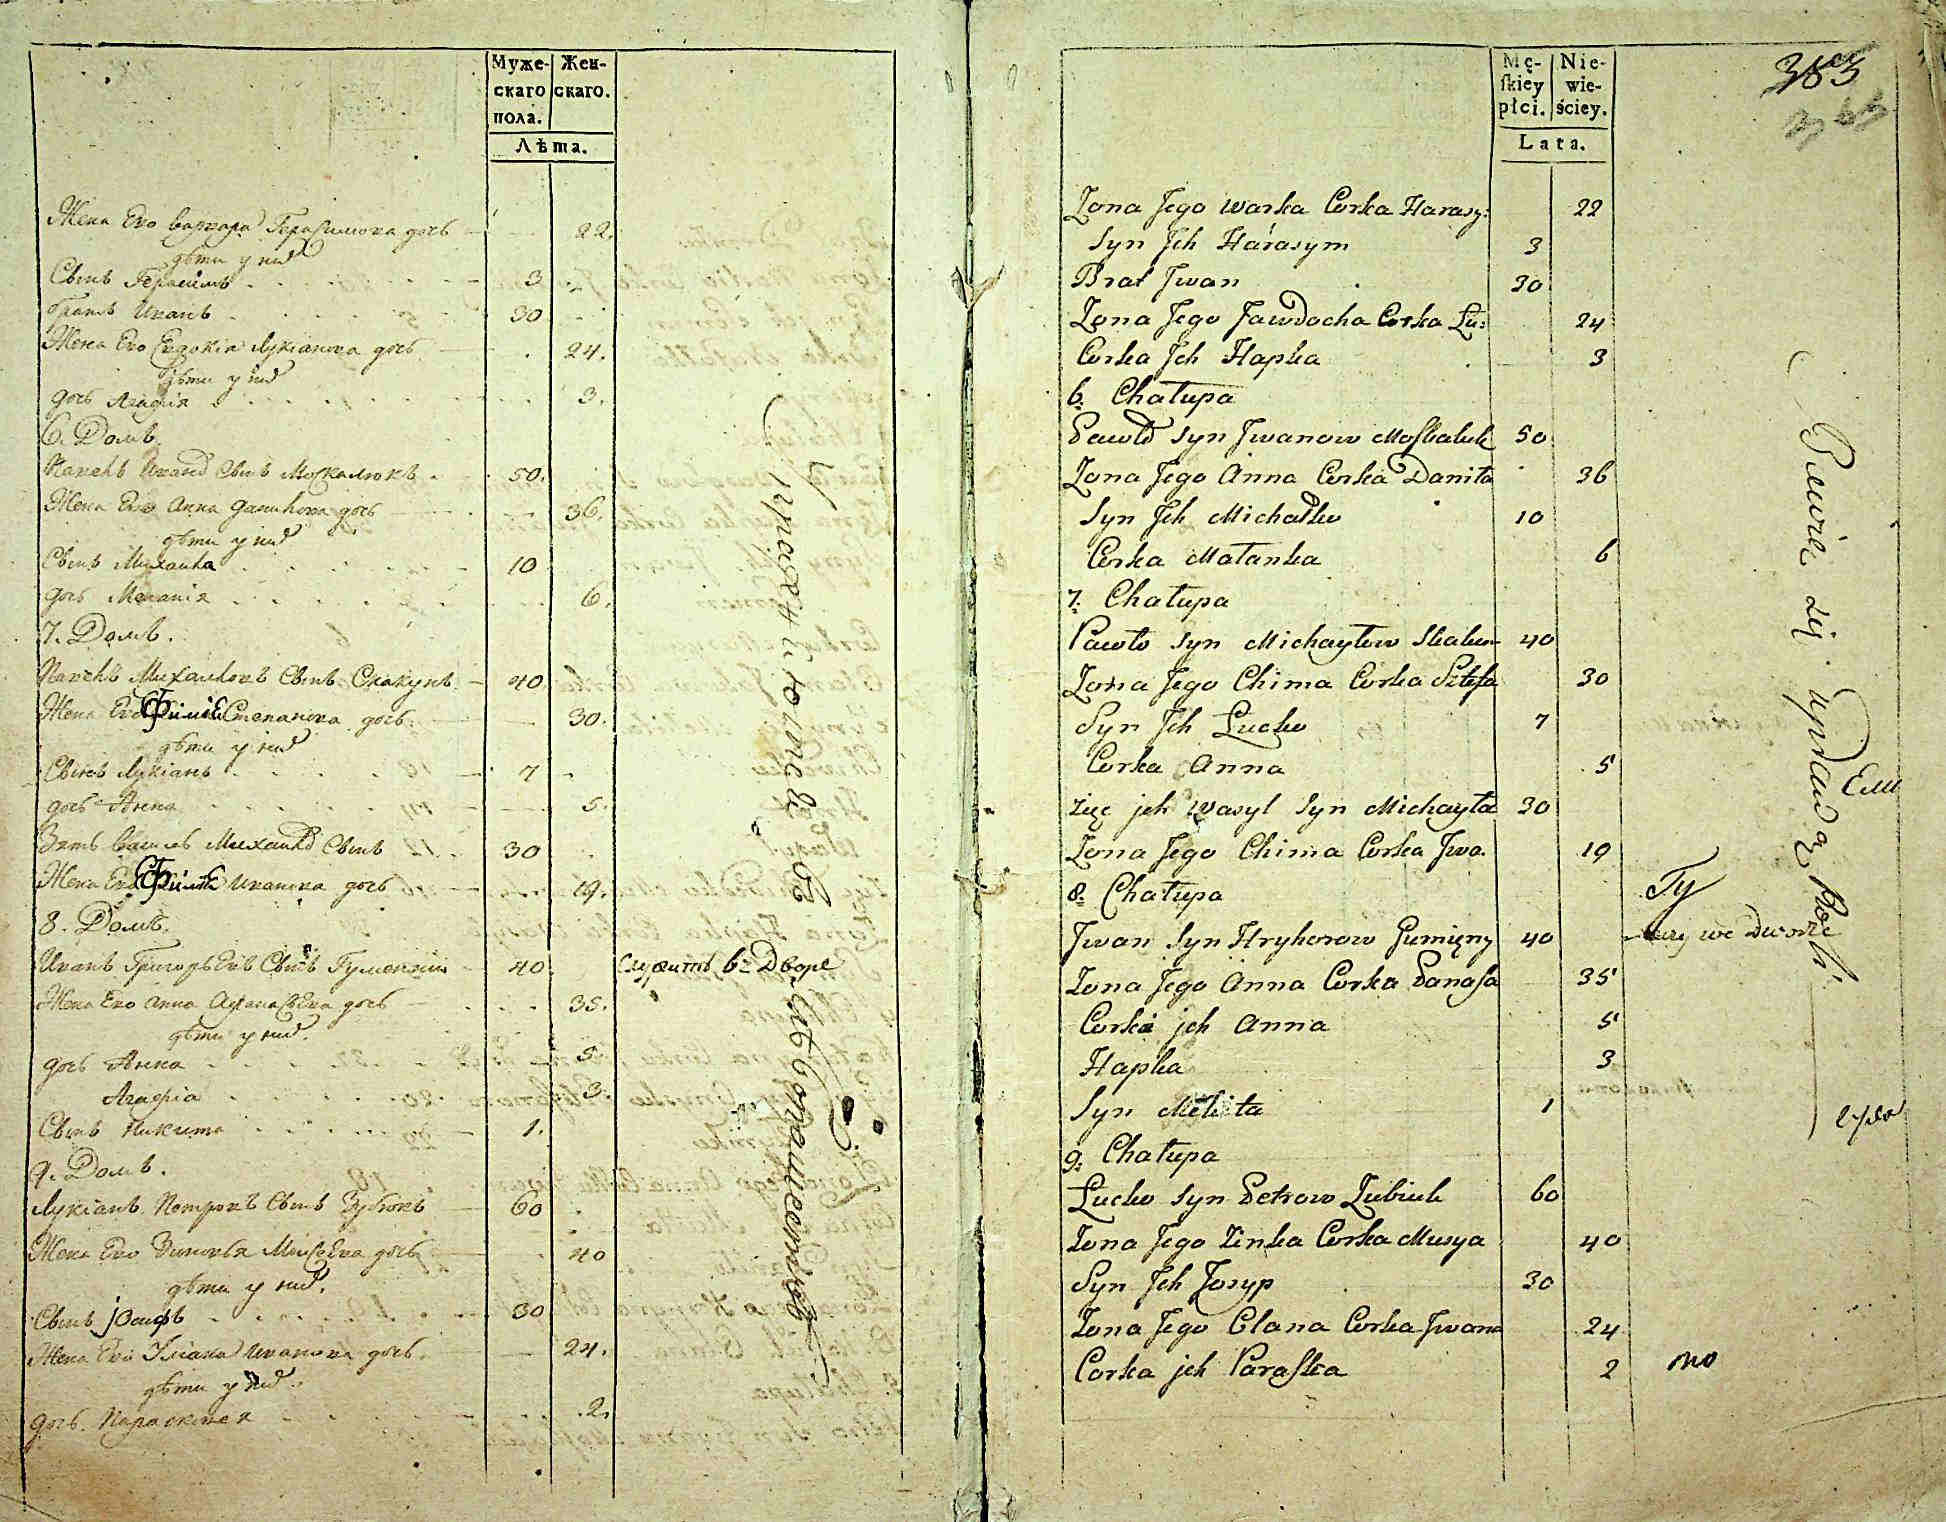 Муже-
скаго
пола.
Жен-
скаго.
Лѣта.
Жена Его Варвара Герасимова дочь 22.
дѣти у них
Сынъ Герасимъ 3
братъ Иванъ 30
Жена Его Евдокiя Лукiанова дочь 24.
дѣти у них
дочь Агафiя 3.
6. Домъ.
Павелъ Иванов Сынъ Москалюкъ 50.
Жена Его Анна Данилова дочь 36.
дѣти у них
Сынъ Михайла 10
дочь Меланiя 6.
7. Домъ.
Павелъ Михайловъ Сынъ Скакунъ 40
Жена Его Степанова дочь 30.
дѣти у них
Сынъ Лукiанъ 7
дочь Анна 5.
Зять Василь Михайлов Сынъ 30
Жена Его Иванова дочь 19.
8. Домъ.
Иванъ Григорьевъ Сынъ Гуменный 40 служитъ въ Дворе
Жена Его Анна Афанасьева дочь 35.
дѣти у них.
дочь Анна 5
Агафiа 3.
Сынъ Никита 1.
9. Домъ.
Лукiанъ Петровъ Сынъ Зубюкъ 60
Жена Его Зиновья Моисеева дочь 40
дѣти у них.
Сынъ Iосифъ 30
Жена Его Улiана Иванова дочь 24.
дѣти у них.
дочь Параскевея 2.
Упражняются въ хлебопашестве
Mę-
skiey
płci.
Nie-
wie-
ściey.
Lata.
385
Zona Jego Warka Corka Harasy: 22
Syn Jch Harasym 3
Brat Jwan 30
Zona Jego Jawdocha Corka Łu: 24
Corka Jch Hapka 3
6. Chałupa
Pawło Syn Jwanow Moskaluk 50
Zona Jego Anna Corka Daniła 36
Syn Jch Michałko 10
Corka Małanka 6
7. Chałupa
Pawło Syn Michayłow Skakun 40
Zona Jego Chima Corka Stefa 30
Syn Jch Łucko 7
Corka Anna 5
zięć jch Wasyl Syn Michayła 30
Zona Jego Chima Corka Jwa. 19
8. Chałupa
Jwan Syn Hryhorow Gumięny 40 we dworze
Zona Jego Anna Corka Panasa 35
Corka jch Anna 5
Hapka 3
Syn Mikita 1
9. Chałupa
Łucko Syn Petrow Zubiuk 60
Zona Jego Zinka Corka Musya 40
Syn Jch Josyp 30
Zona Jego Olana Corka Jwana 24
Corka jch Paraska 2